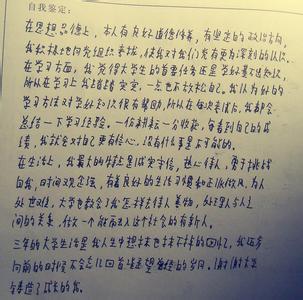 自我鉴定：
在思想品德上，本人有良好道德修养，有坚定的政治方向，
我积极地向党组织靠拢，使我对我们党有更为深刻的认识。
在学习方面，我觉得大学生的首要任务还是学好基本知识，
所以在学习上我踏踏实定，一点也不放松自己。我认为好的
学习方法对学好知识很有帮助，所以在每次考试后，我都会
总结一下学习经验。一份耕耘一分收获，每看到自己的成
绩，我就会对自己更有信心，没有什么事是不可能的。
在生活上，我最大的特点是诚实守信，热心待人，勇于挑战
自我，时间观念强，有着良好的生活习惯和正派作风。为人
处世观，大学也教会了我怎样去待人善物，处理人与人之
间的关系，做一个能融入这个社会的有新人。
三年的大学生活是我人生中想抹也抹不掉的回忆，我迈步
向前的时候不会忘记回首凝望曾经的岁月。谢谢大学